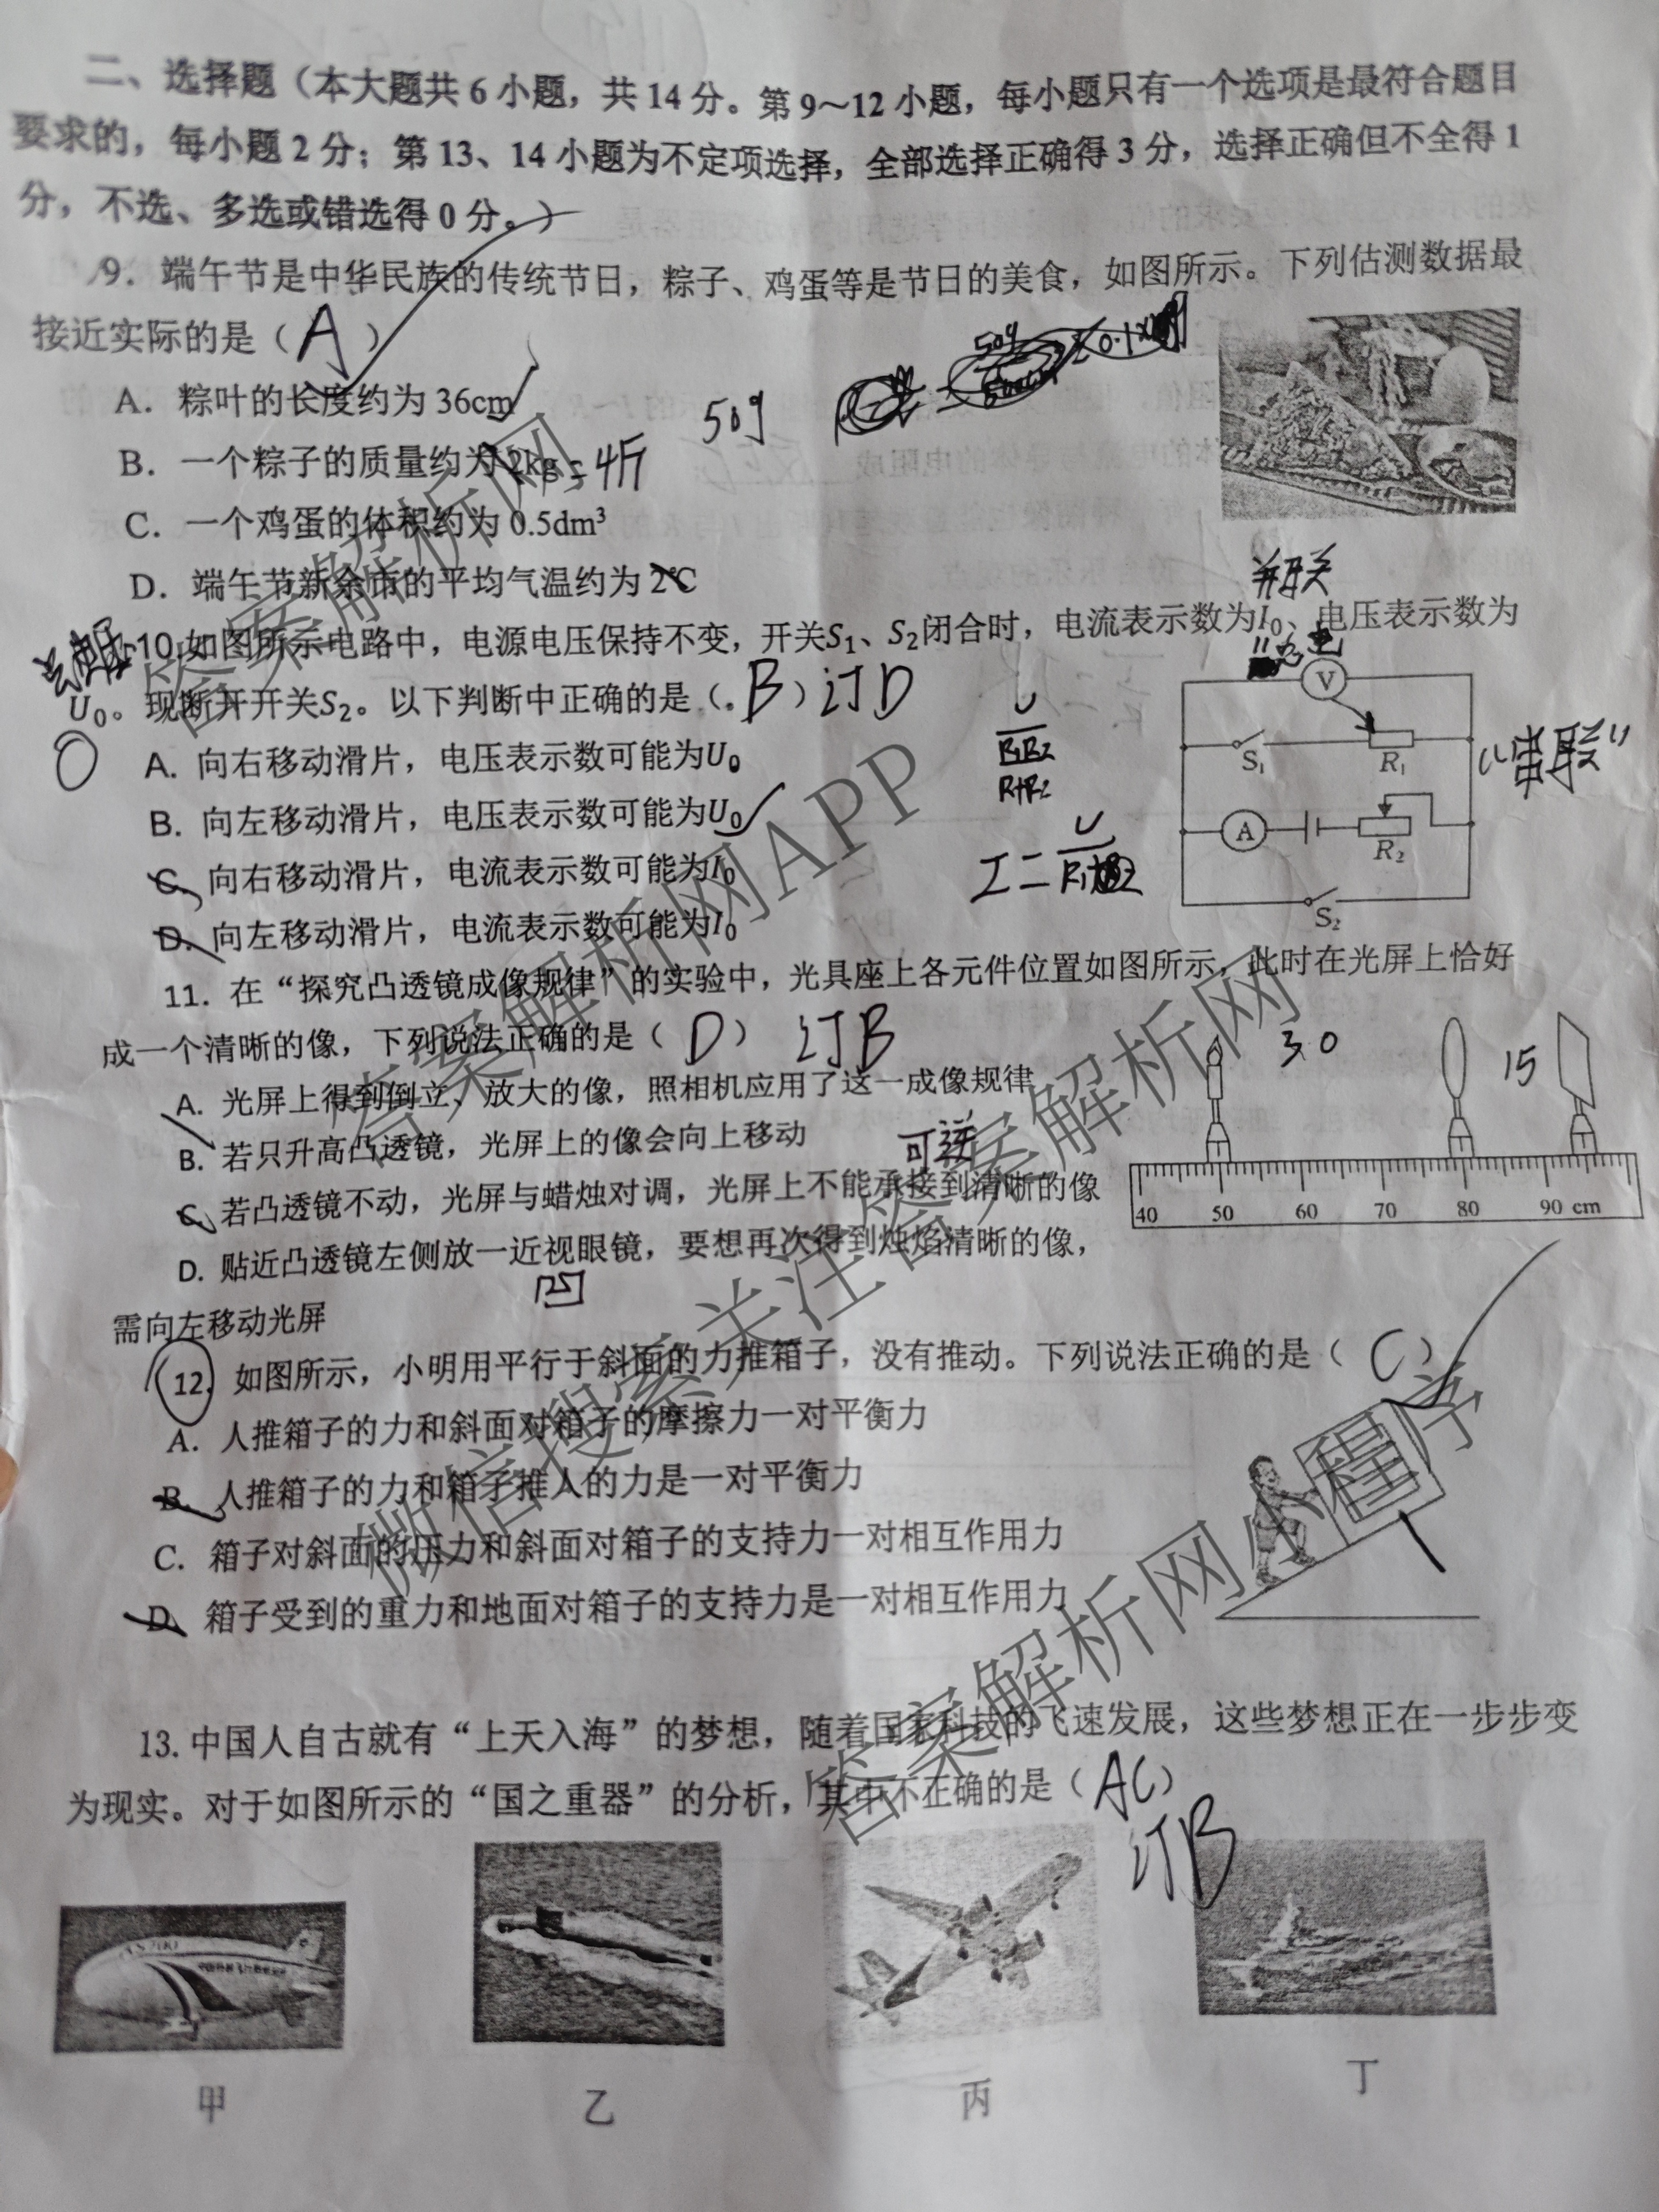 二、选择题（本大题共6小题，共14分。第9～12小题，每小题只有一个选项是最符合题目
要求的，每小题2分；第13、14小题为不定项选择，全部选择正确得3分，选择正确但不全得1
分，不选、多选或错选得0分。）
9．端午节是中华民族的传统节日，粽子、鸡蛋等是节日的美食，如图所示。下列估测数据最
接近实际的是（A）
A．粽叶的长度约为36cm
50g
B．一个粽子的质量约为2kg=4斤
C．一个鸡蛋的体积约为0.5dm³
D．端午节新余市的平均气温约为2℃
并联
10.如图所示电路中，电源电压保持不变，开关S₁、S₂闭合时，电流表示数为I₀、电压表示数为
U₀。现断开开关S₂。以下判断中正确的是（B）订D
A. 向右移动滑片，电压表示数可能为U₀
B. 向左移动滑片，电压表示数可能为U₀
C. 向右移动滑片，电流表示数可能为I₀
D. 向左移动滑片，电流表示数可能为I₀
V
S₁
R₁
“串联”
A
R₂
S₂
U
R₁R₂
R₁+R₂
11．在“探究凸透镜成像规律”的实验中，光具座上各元件位置如图所示，此时在光屏上恰好
成一个清晰的像，下列说法正确的是（D）订B
A. 光屏上得到倒立、放大的像，照相机应用了这一成像规律
B. 若只升高凸透镜，光屏上的像会向上移动
可逆
C. 若凸透镜不动，光屏与蜡烛对调，光屏上不能承接到清晰的像
D. 贴近凸透镜左侧放一近视眼镜，要想再次得到烛焰清晰的像，
凹
需向左移动光屏
30
15
40 50 60 70 80 90 cm
12. 如图所示，小明用平行于斜面的力推箱子，没有推动。下列说法正确的是（C）
A．人推箱子的力和斜面对箱子的摩擦力一对平衡力
B．人推箱子的力和箱子推人的力是一对平衡力
C．箱子对斜面的压力和斜面对箱子的支持力一对相互作用力
D．箱子受到的重力和地面对箱子的支持力是一对相互作用力
13.中国人自古就有“上天入海”的梦想，随着国家科技的飞速发展，这些梦想正在一步步变
为现实。对于如图所示的“国之重器”的分析，其中不正确的是（AC）
订B
甲
乙
丙
丁
答案解析网
答案解析网APP
微信搜索关注答案解析网
答案解析网小程序